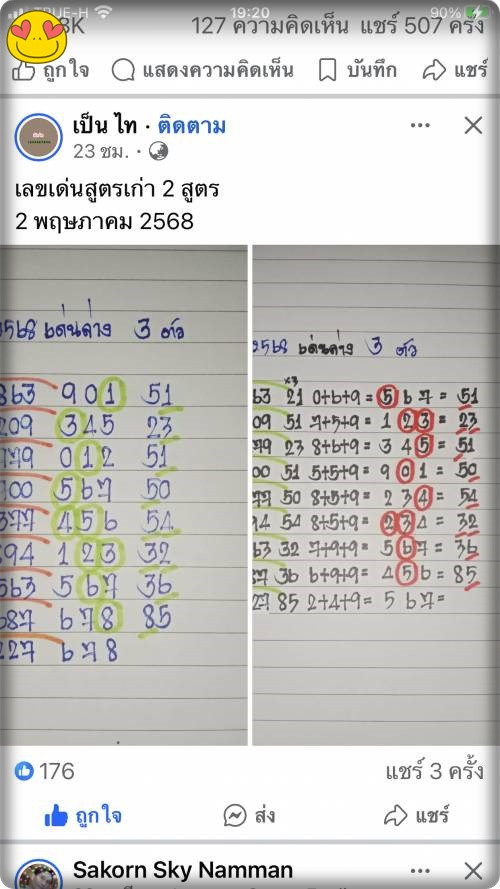 TRUE-H 19:20 90%
8K 127 ความคิดเห็น แชร์ 507 ครั้ง
ถูกใจ แสดงความคิดเห็น บันทึก แชร์
เป็น ไท · ติดตาม
23 ชม. ·
เลขเด่นสูตรเก่า 2 สูตร
2 พฤษภาคม 2568
2568 เด่นล่าง 3 ตัว
863 901 51
209 345 23
779 012 51
300 567 50
377 456 54
894 123 32
563 567 36
687 678 85
227 678
2568 เด่นล่าง 3 ตัว
×3
63 21 0+6+9= 5 67 = 51
09 51 7+5+9= 1 23 = 23
79 23 8+6+9= 3 45 = 51
00 51 5+5+9= 9 01 = 50
77 50 8+5+9= 2 34 = 54
94 54 8+5+9= 2 34 = 32
63 32 7+9+9= 5 67 = 36
87 36 6+9+9= 4 56 = 85
27 85 2+4+9= 5 67=
176 แชร์ 3 ครั้ง
ถูกใจ ส่ง แชร์
Sakorn Sky Namman